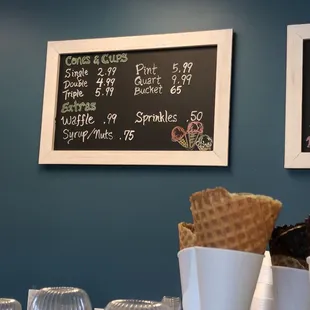 Cones & Cups
Single 2.99
Double 4.99
Triple 5.99
Pint 5.99
Quart 9.99
Bucket 65
Extras
Waffle .99
Sprinkles .50
Syrup/Nuts .75